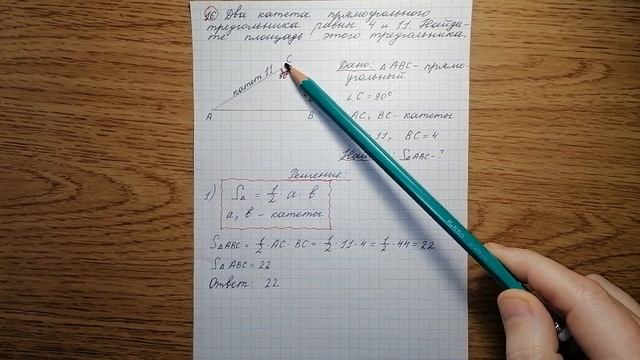 16 Два катета прямоугольного
треугольника равны 4 и 11. Найди-
те площадь этого треугольника.
C
катет 11
A
B
Дано: △ABC - прямо-
угольный
∠C = 90°
AC, BC - катеты
11, BC = 4
Най : S△ABC - ?
Решение:
1) S△ = 1/2 a · b
a, b - катеты
S△ABC = 1/2 · AC · BC = 1/2 · 11 · 4 = 1/2 · 44 = 22
S△ABC = 22
Ответ: 22